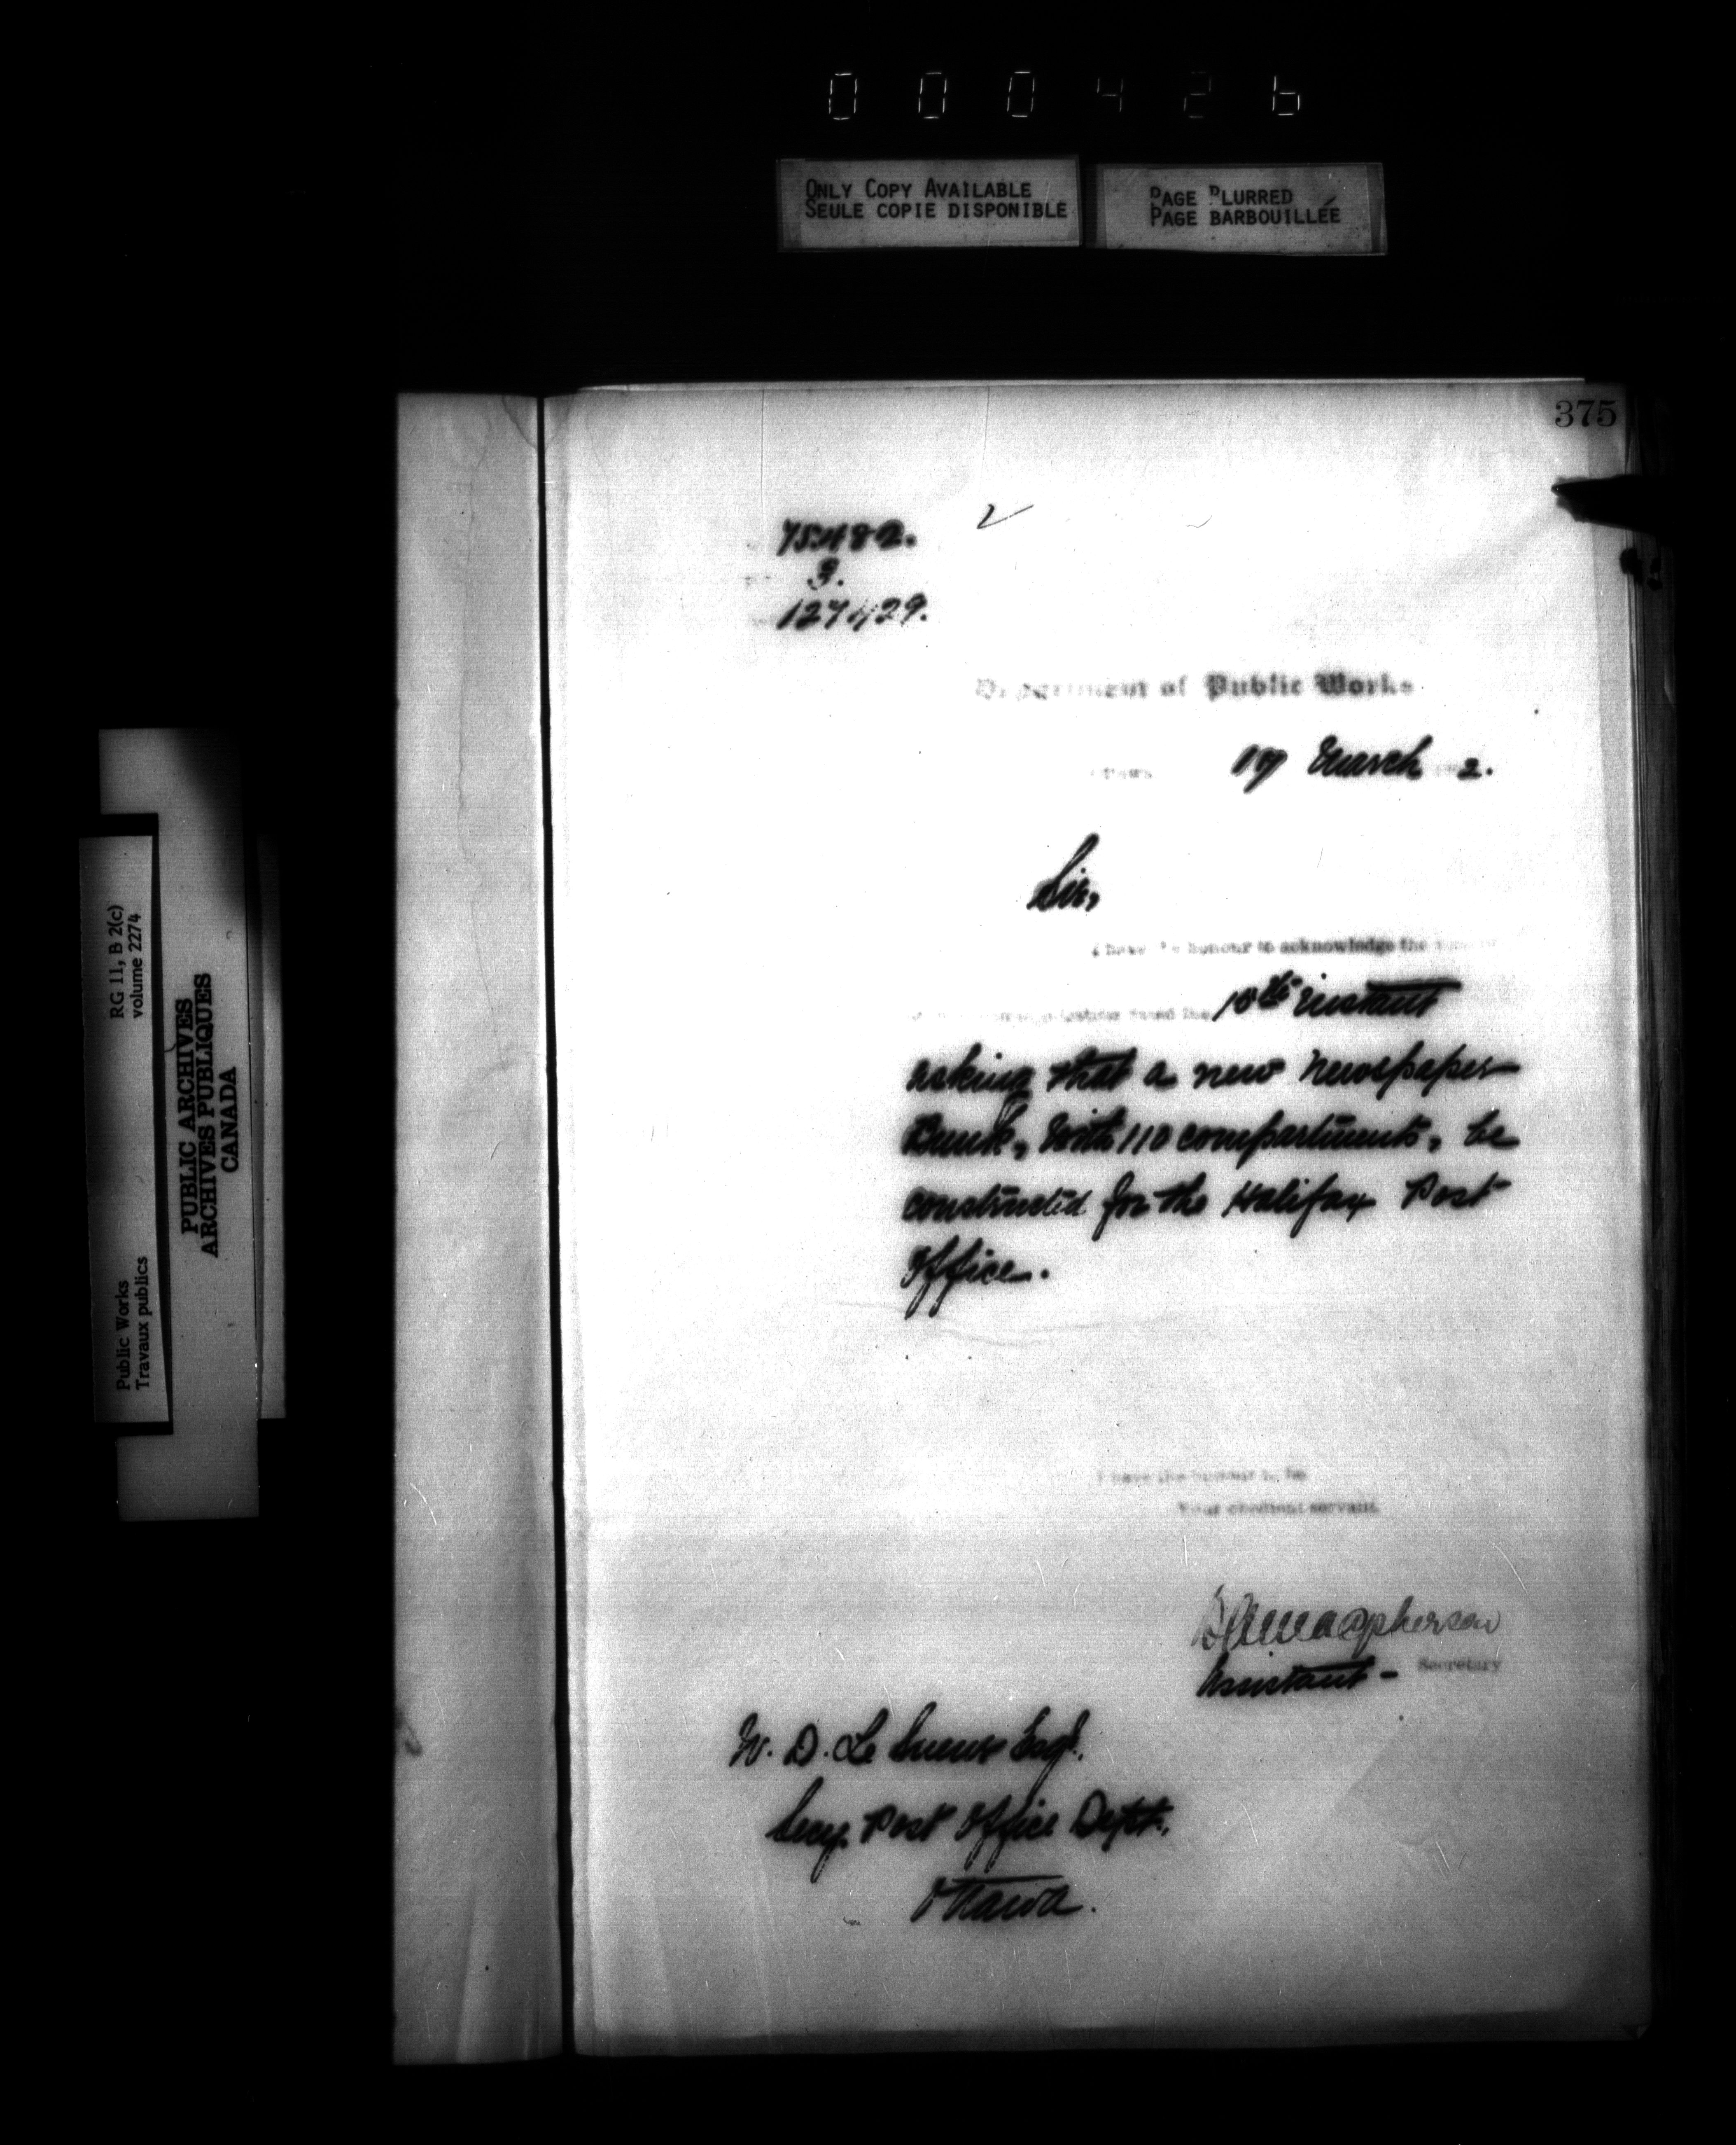 000426
ONLY COPY AVAILABLE
SEULE COPIE DISPONIBLE
PAGE BLURRED
PAGE BARBOUILLÉE
375
75482.
127429.
Department of Public Works
17 March 2.
Sir,
I have the honour to acknowledge the
10th instant
asking that a new newspaper
Bunk, with 110 compartments, be
constructed for the Halifax Post
Office.
I have the honour to be
Your obedient servant,
Macpherson
Assistant - Secretary
W. D. Le Sueur Esqr.
Secy. Post Office Deptt.
Ottawa.
RG 11, B 2(c)
volume 2274
Public Works
Travaux publics
PUBLIC ARCHIVES
ARCHIVES PUBLIQUES
CANADA